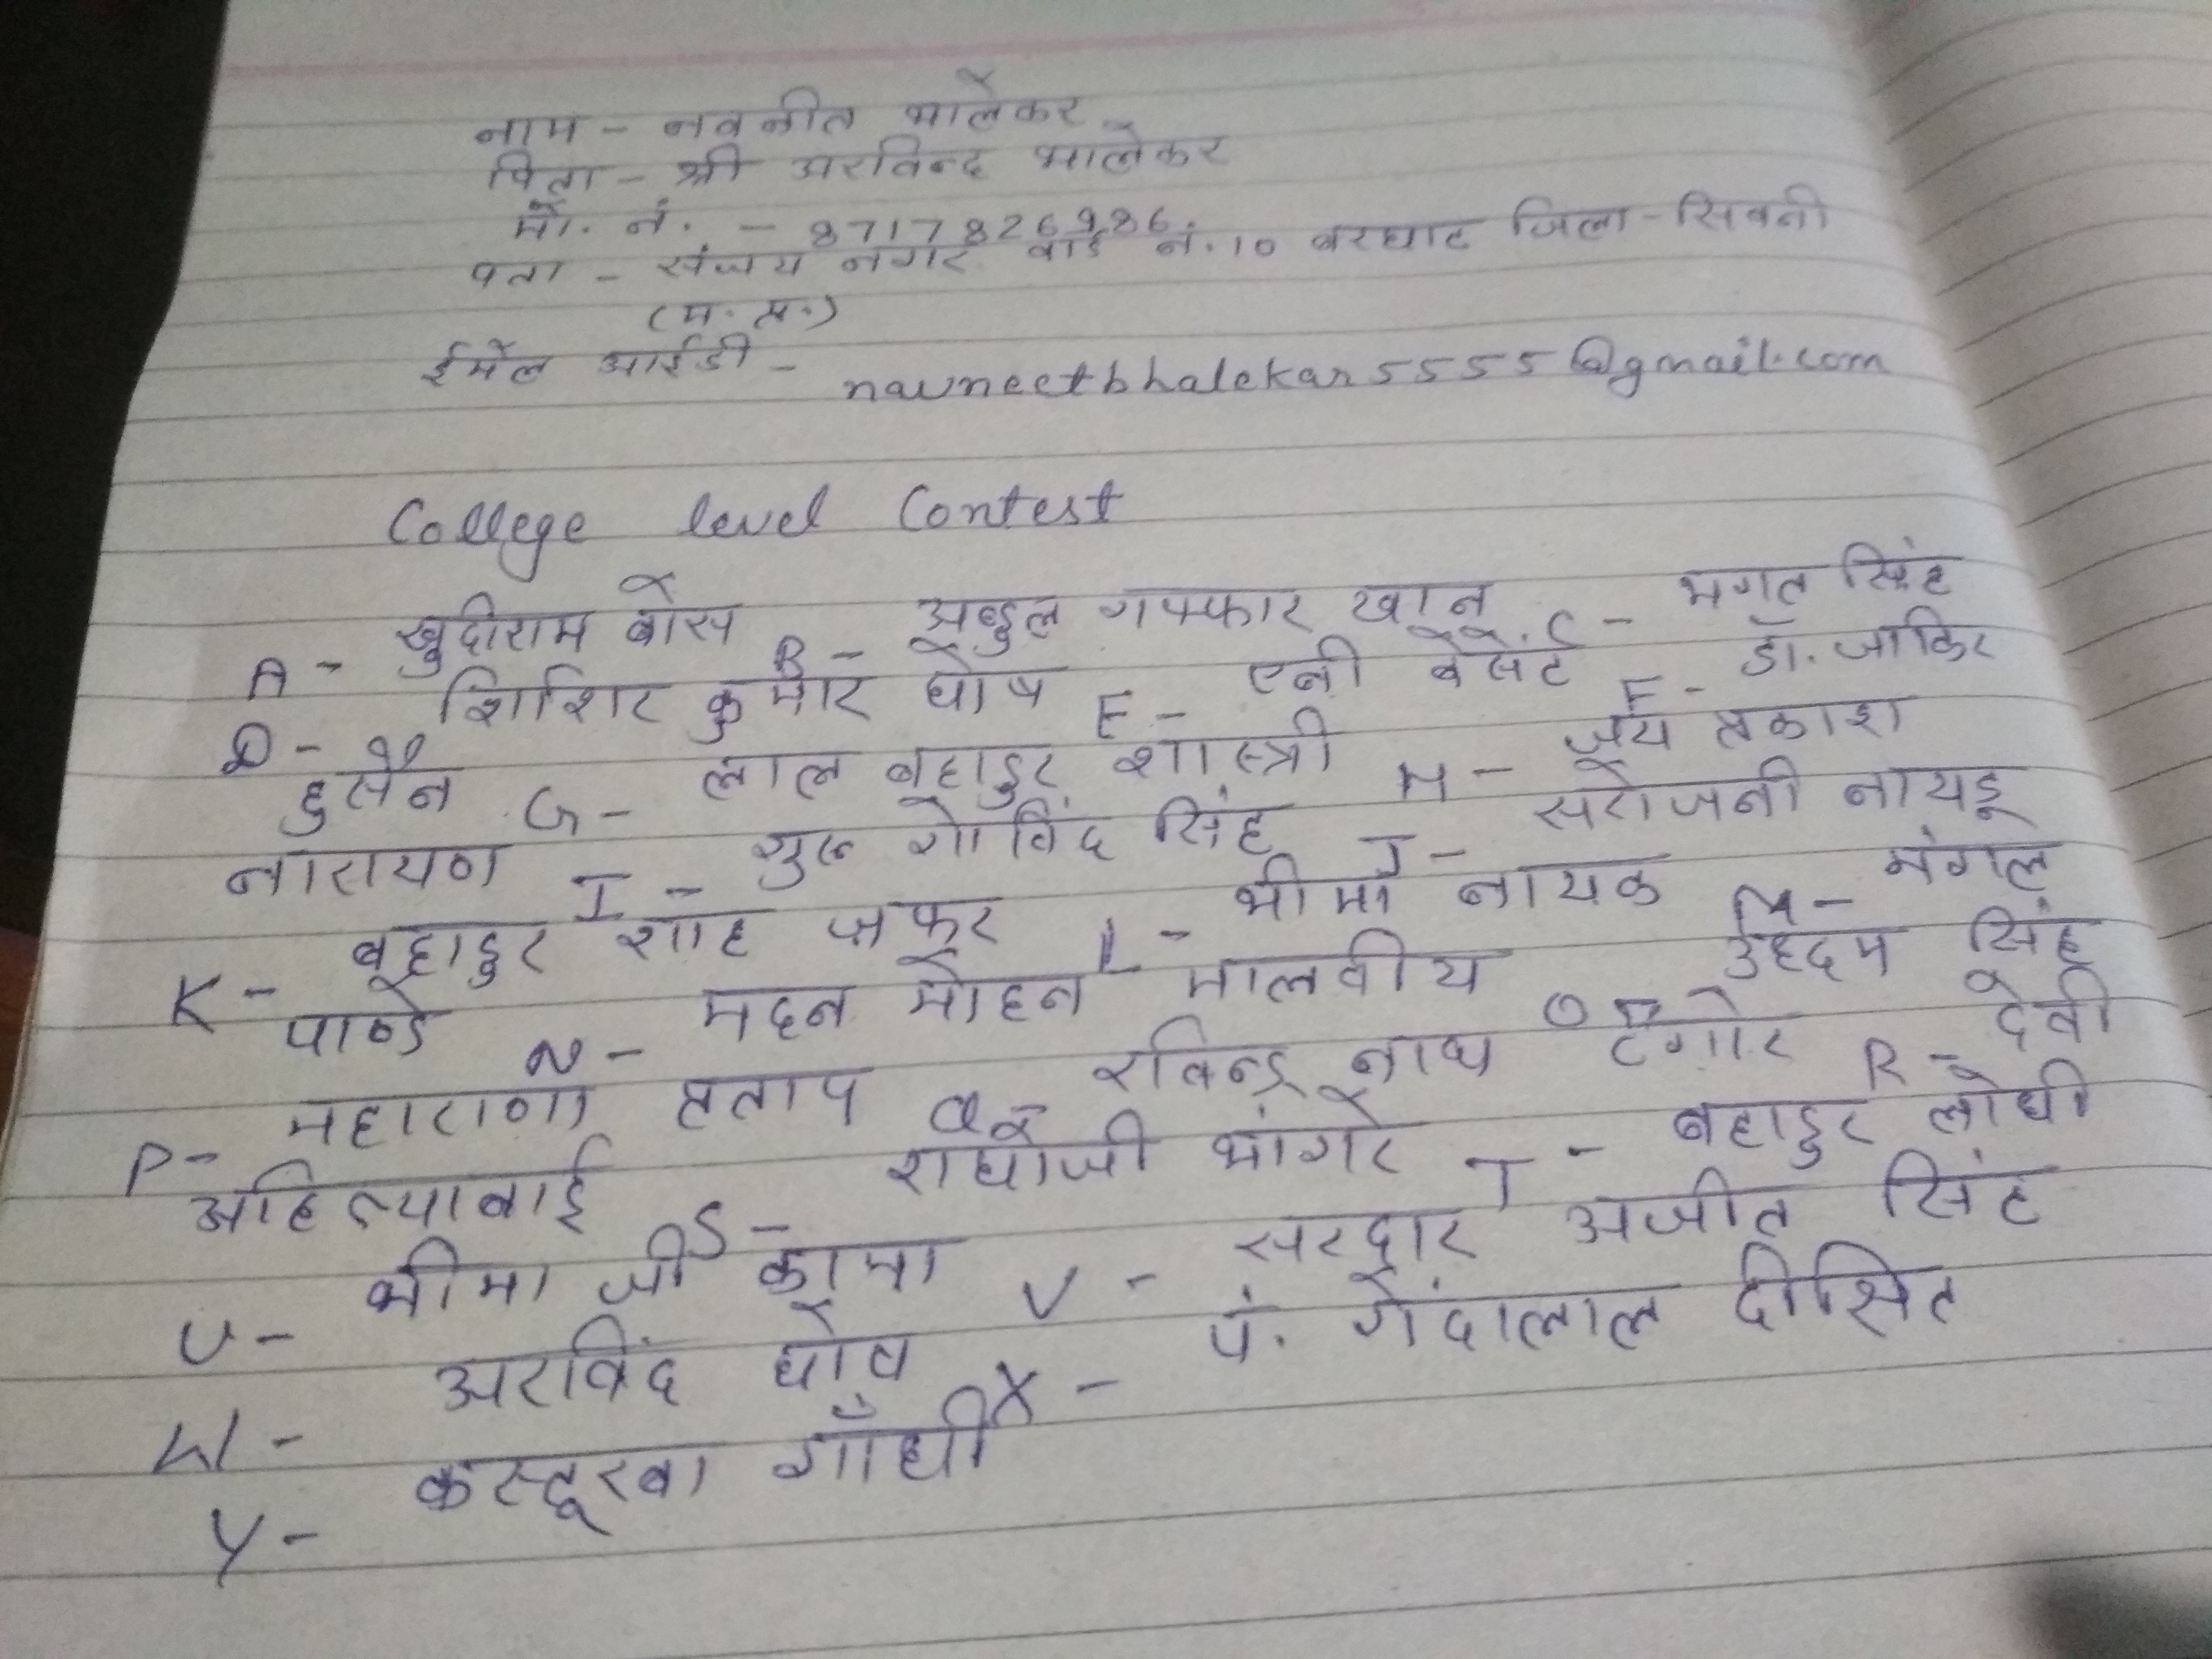 नाम - नवनीत भालेकर
पिता - श्री अरविन्द भालेकर
मो. नं. - 8717826986
पता - संजय नगर वार्ड नं. 10 बरघाट जिला - सिवनी
(म. प्र.)
ईमेल आईडी - navneetbhalekar5555@gmail.com
College level Contest
A - खुदीराम बोस B - अब्दुल गफ्फार खान C - भगत सिंह
D - शिशिर कुमार घोष E - एनी बेसेंट F - डॉ. जाकिर
हुसैन G - लाल बहादुर शास्त्री H - जय प्रकाश
नारायण I - गुरु गोविंद सिंह J - सरोजनी नायडू
K - बहादुर शाह जफर L - भीमा नायक M - मंगल
पाण्डे N - मदन मोहन मालवीय O - उद्दम सिंह
P - महाराणा प्रताप Q - रविन्द्र नाथ टैगोर R - देवी
अहिल्याबाई S - राघोजी भांगरे T - बहादुर लोधी
U - भीमा जी कामा V - सरदार अजीत सिंह
W - अरविंद घोष X - पं. गेंदालाल दीक्षित
Y - कस्तूरबा गाँधी